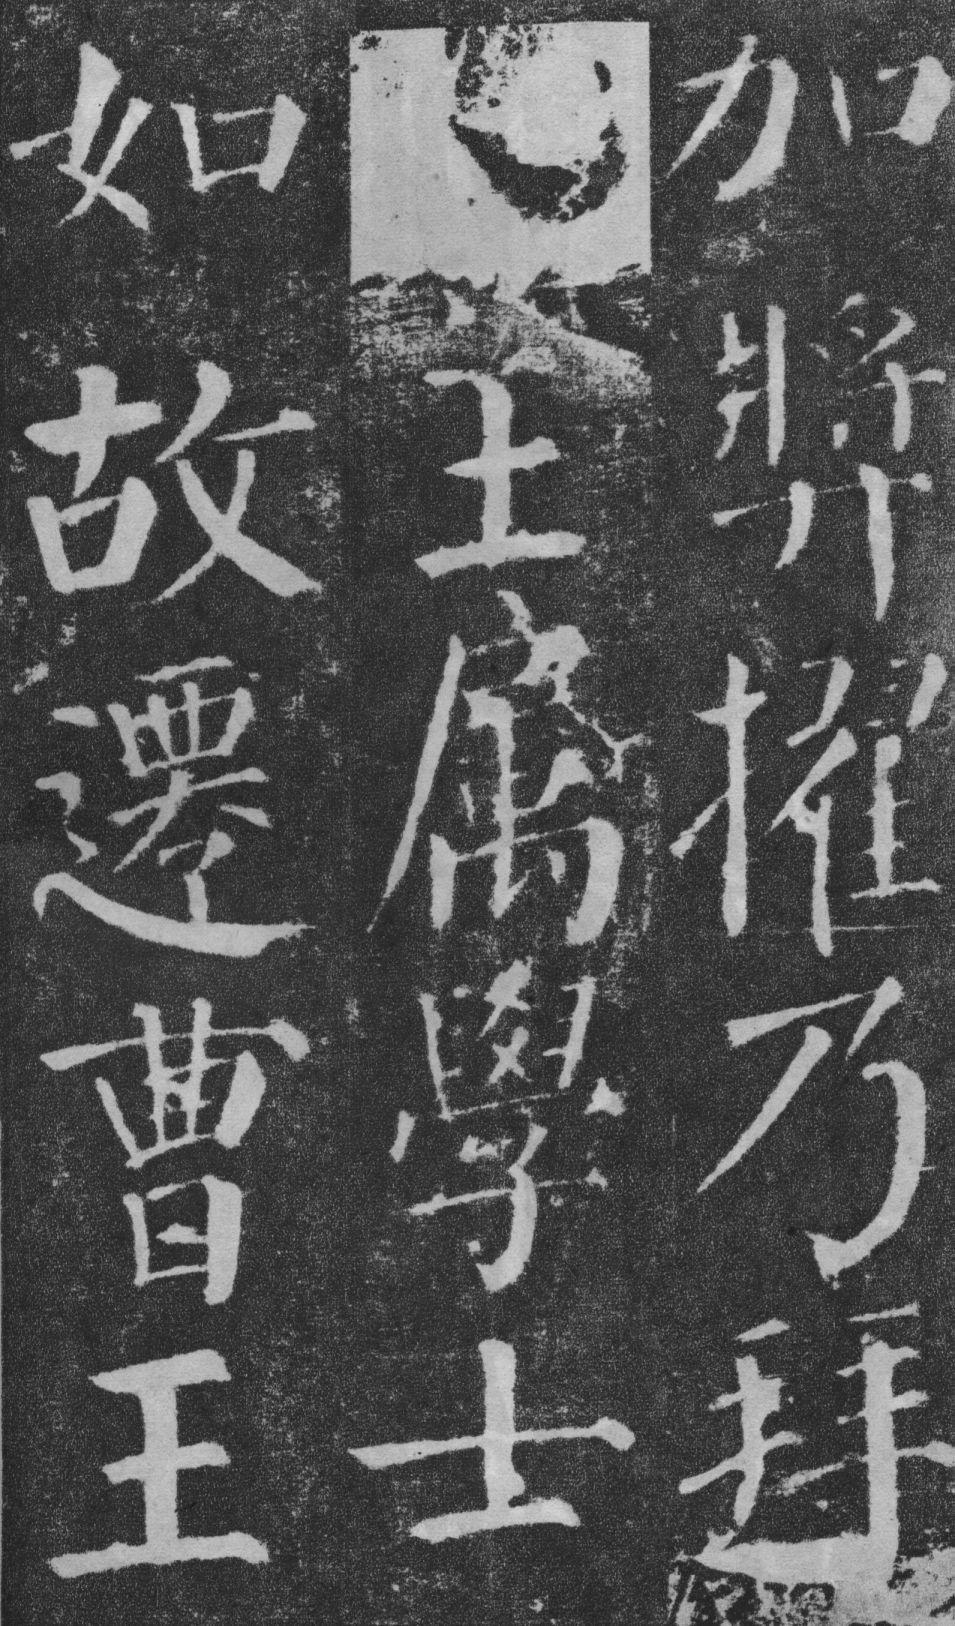 加獎擢乃拜
王属學士
如故遷曹王